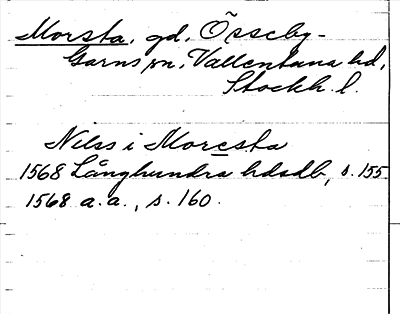 Morsta, gd, Össeby-
Garns sn, Vallentuna hd,
Stockh. l.
Nilss i Moresta
1568 Långhundra hdsdb, s. 155
1568 a.a., s. 160.